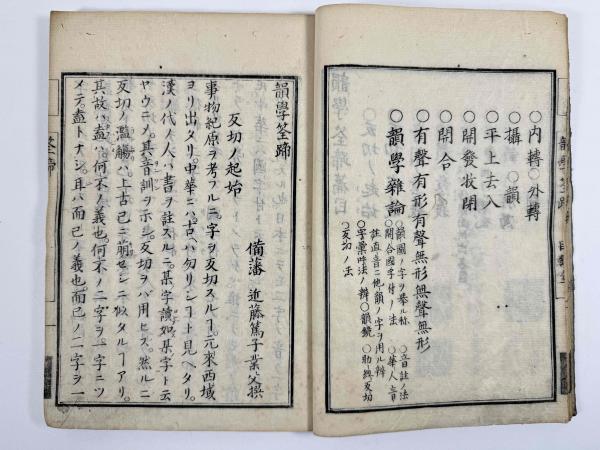 ○内轉○外轉
○攝○韻
○平上去入
○開發收閉
○開合
○有聲有形有聲無形無聲無形
○韻學雜論
○韻圖ノ字ヲ擧ル㕝
○音註ノ法
○開合國字付ノ法
○華人音
註直音ニ他韻ノ字ヲ用ル辨
○字彙呼法ノ辨○韻鏡
○助紐反切
○反切ノ法
韻學筌蹄
備藩 近藤篤子業父撰
反切ノ起始
事物紀原ヲ考フルニ字ヲ反切スルヿ元來西域
ヨリ出タリ中華ニハ古ハ勿リシヿト見ヘタリ
漢ノ代ノ人ハ書ヲ註スルニ某字讀如某字ト云
ヤウニメ其音訓ヲホシ反切ヲバ用ヒズ然ルニ
反切ノ濫觴ハ上古已ニ萠セシニ似タルヿアリ
其故ハ盍ハ何不ノ義也何不ノ二字ヲ一字ニツ
メテ盍トナシ耳ハ而已ノ義也而已ノ二字ヲ一
筌蹄